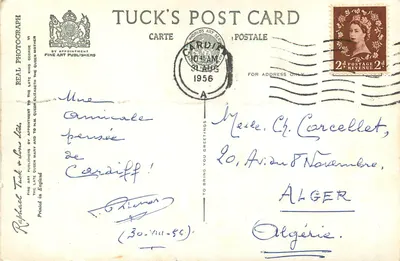 TUCK'S POST CARD
CARTE POSTALE
BY APPOINTMENT
FINE ART PUBLISHERS
REAL PHOTOGRAPH
FOR ADDRESS ONLY
CARDIFF
31 AUG
1956
A
POSTAGE REVENUE
2d 2d
Raphael Tuck & Sons Ltd.
Printed in England
Une
amicale
pensée
de
Cardiff!
(30-VIII-56)
Ch. Corcellet,
20, Av. du 8 Novembre.
ALGER
Algérie.